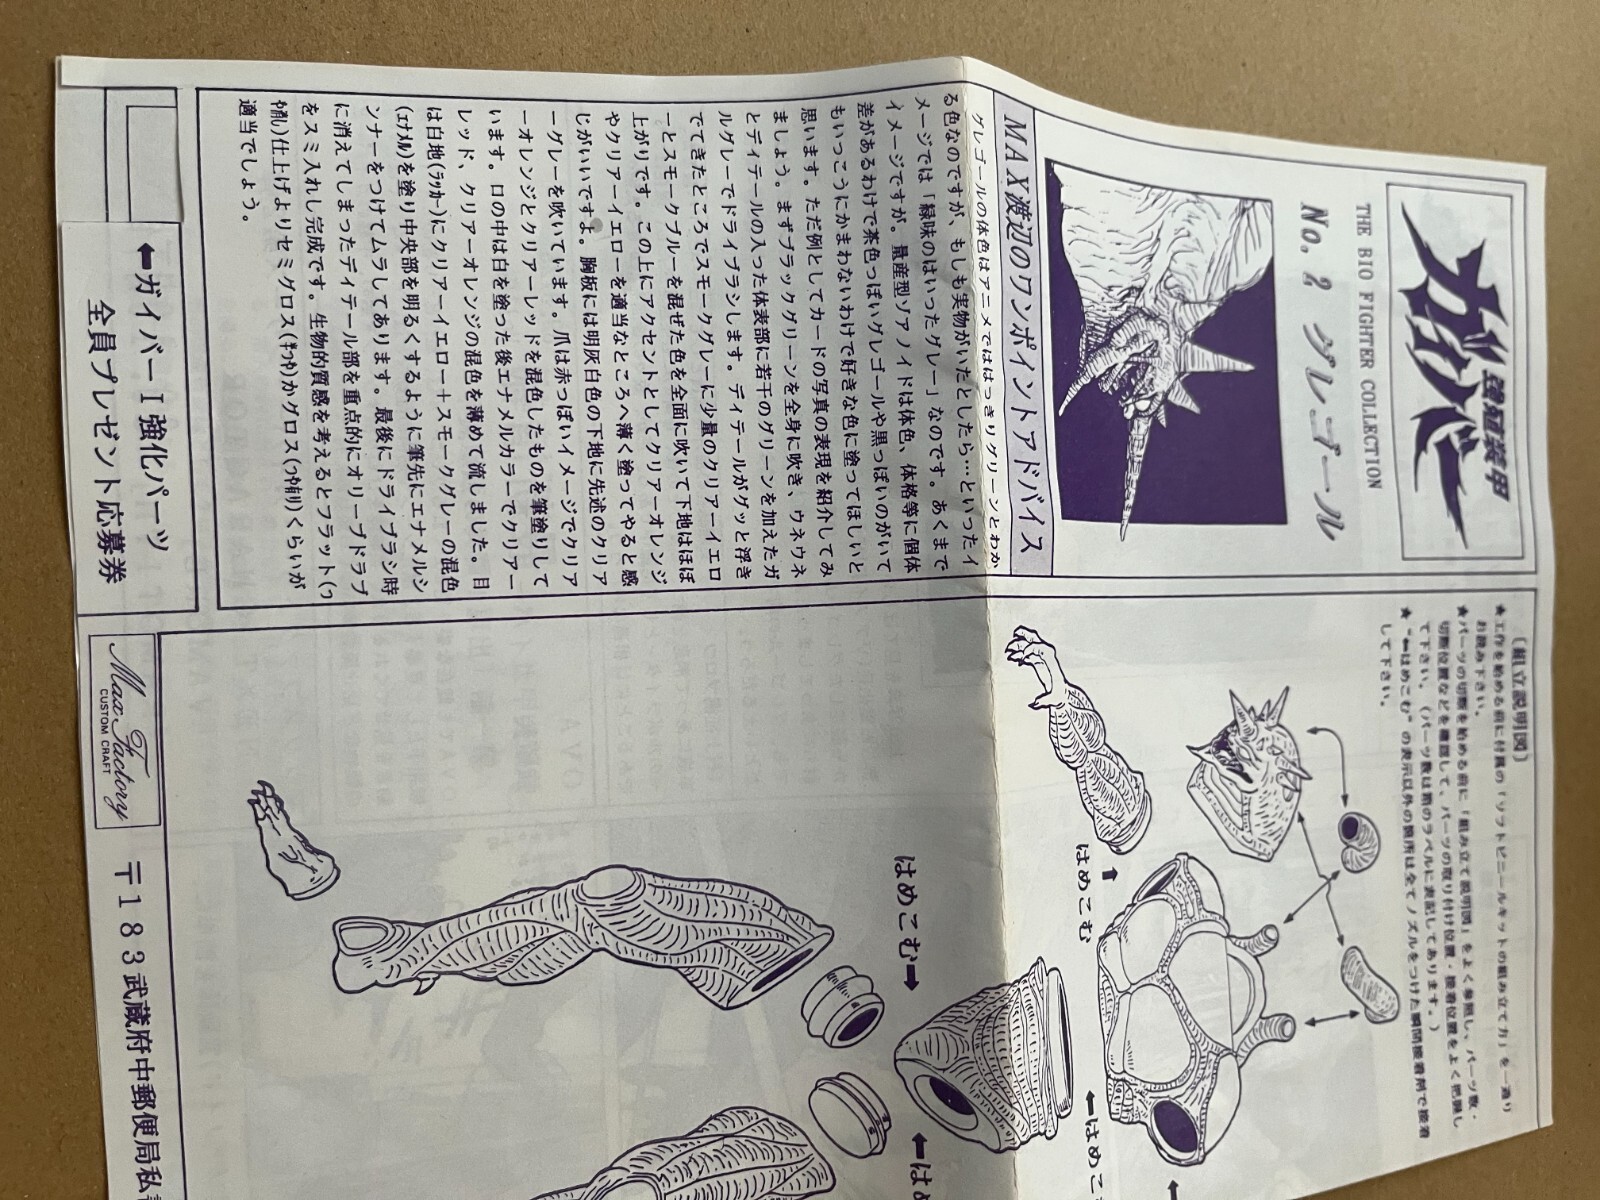 強殖装甲
ガイバー
THE BIO FIGHTER COLLECTION
No.2 グレゴール
MAX渡辺のワンポイントアドバイス
グレゴールの体色はアニメでははっきりグリーンとわか
る色なのですが、もしも実物がいたとしたら…といったイ
メージでは「緑味のはいったグレー」なのです。あくまで
イメージですが。量産型ゾアノイドは体色、体格等に個体
差があるわけで茶色っぽいグレゴールや黒っぽいのがいて
もいっこうにかまわないわけで好きな色に塗ってほしいと
思います。ただ例としてカードの写真の表現を紹介してみ
ましょう。まずブラックグリーンを全身に吹き、ウネウネ
とディテールの入った体表部に若干のグリーンを加えたガ
ルグレーでドライブラシします。ディテールがグッと浮き
でてきたところでスモークグレーに少量のクリアーイエロ
ーとスモークブルーを混ぜた色を全面に吹いて下地はほぼ
上がりです。この上にアクセントとしてクリアーオレンジ
やクリアーイエローを適当なところへ薄く塗ってやると感
じがいいですよ。胸板には明灰白色の下地に先述のクリア
ーグレーを吹いています。爪は赤っぽいイメージでクリア
ーオレンジとクリアーレッドを混色したものを筆塗りして
います。口の中は白を塗った後エナメルカラーでクリアー
レッド、クリアーオレンジの混色を薄めて流しました。目
は白地(ラッカー)にクリアーイエロー+スモークグレーの混色
(エナメル)を塗り中央部を明るくするように筆先にエナメルシ
ンナーをつけてムラしてあります。最後にドライブラシ時
に消えてしまったディテール部を重点的にオリーブドラブ
をスミ入れし完成です。生物的質感を考えるとフラット(つ
や消し)仕上げよりセミグロス(半つや)かグロス(つや有り)くらいが
適当でしょう。
⬅ガイバーⅠ強化パーツ
全員プレゼント応募券
〔組立説明図〕
★工作を始める前に付属の「ソフトビニールキットの組み立て方」を一通り
お読み下さい。
★パーツの切断を始める前に「組み立て説明図」をよく参照し、パーツ数・
切断位置などを確認して、パーツの取り付け位置・接着位置をよく把握し
て下さい。(パーツ数は箱のラベルに表記してあります。)
★"⬅はめこむ"の表示以外の箇所は全てノズルをつけた瞬間接着剤で接着
して下さい。
はめこむ
はめこむ➡
⬅はめこ
⬅は
Max Factory
CUSTOM CRAFT
〒183武蔵府中郵便局私